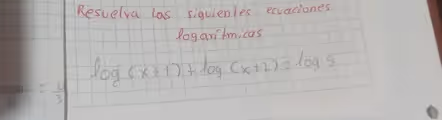 Resuelva las siguientes ecuaciones
logarítmicas
log (x+1) + log (x+2) = log 5
= 1/3